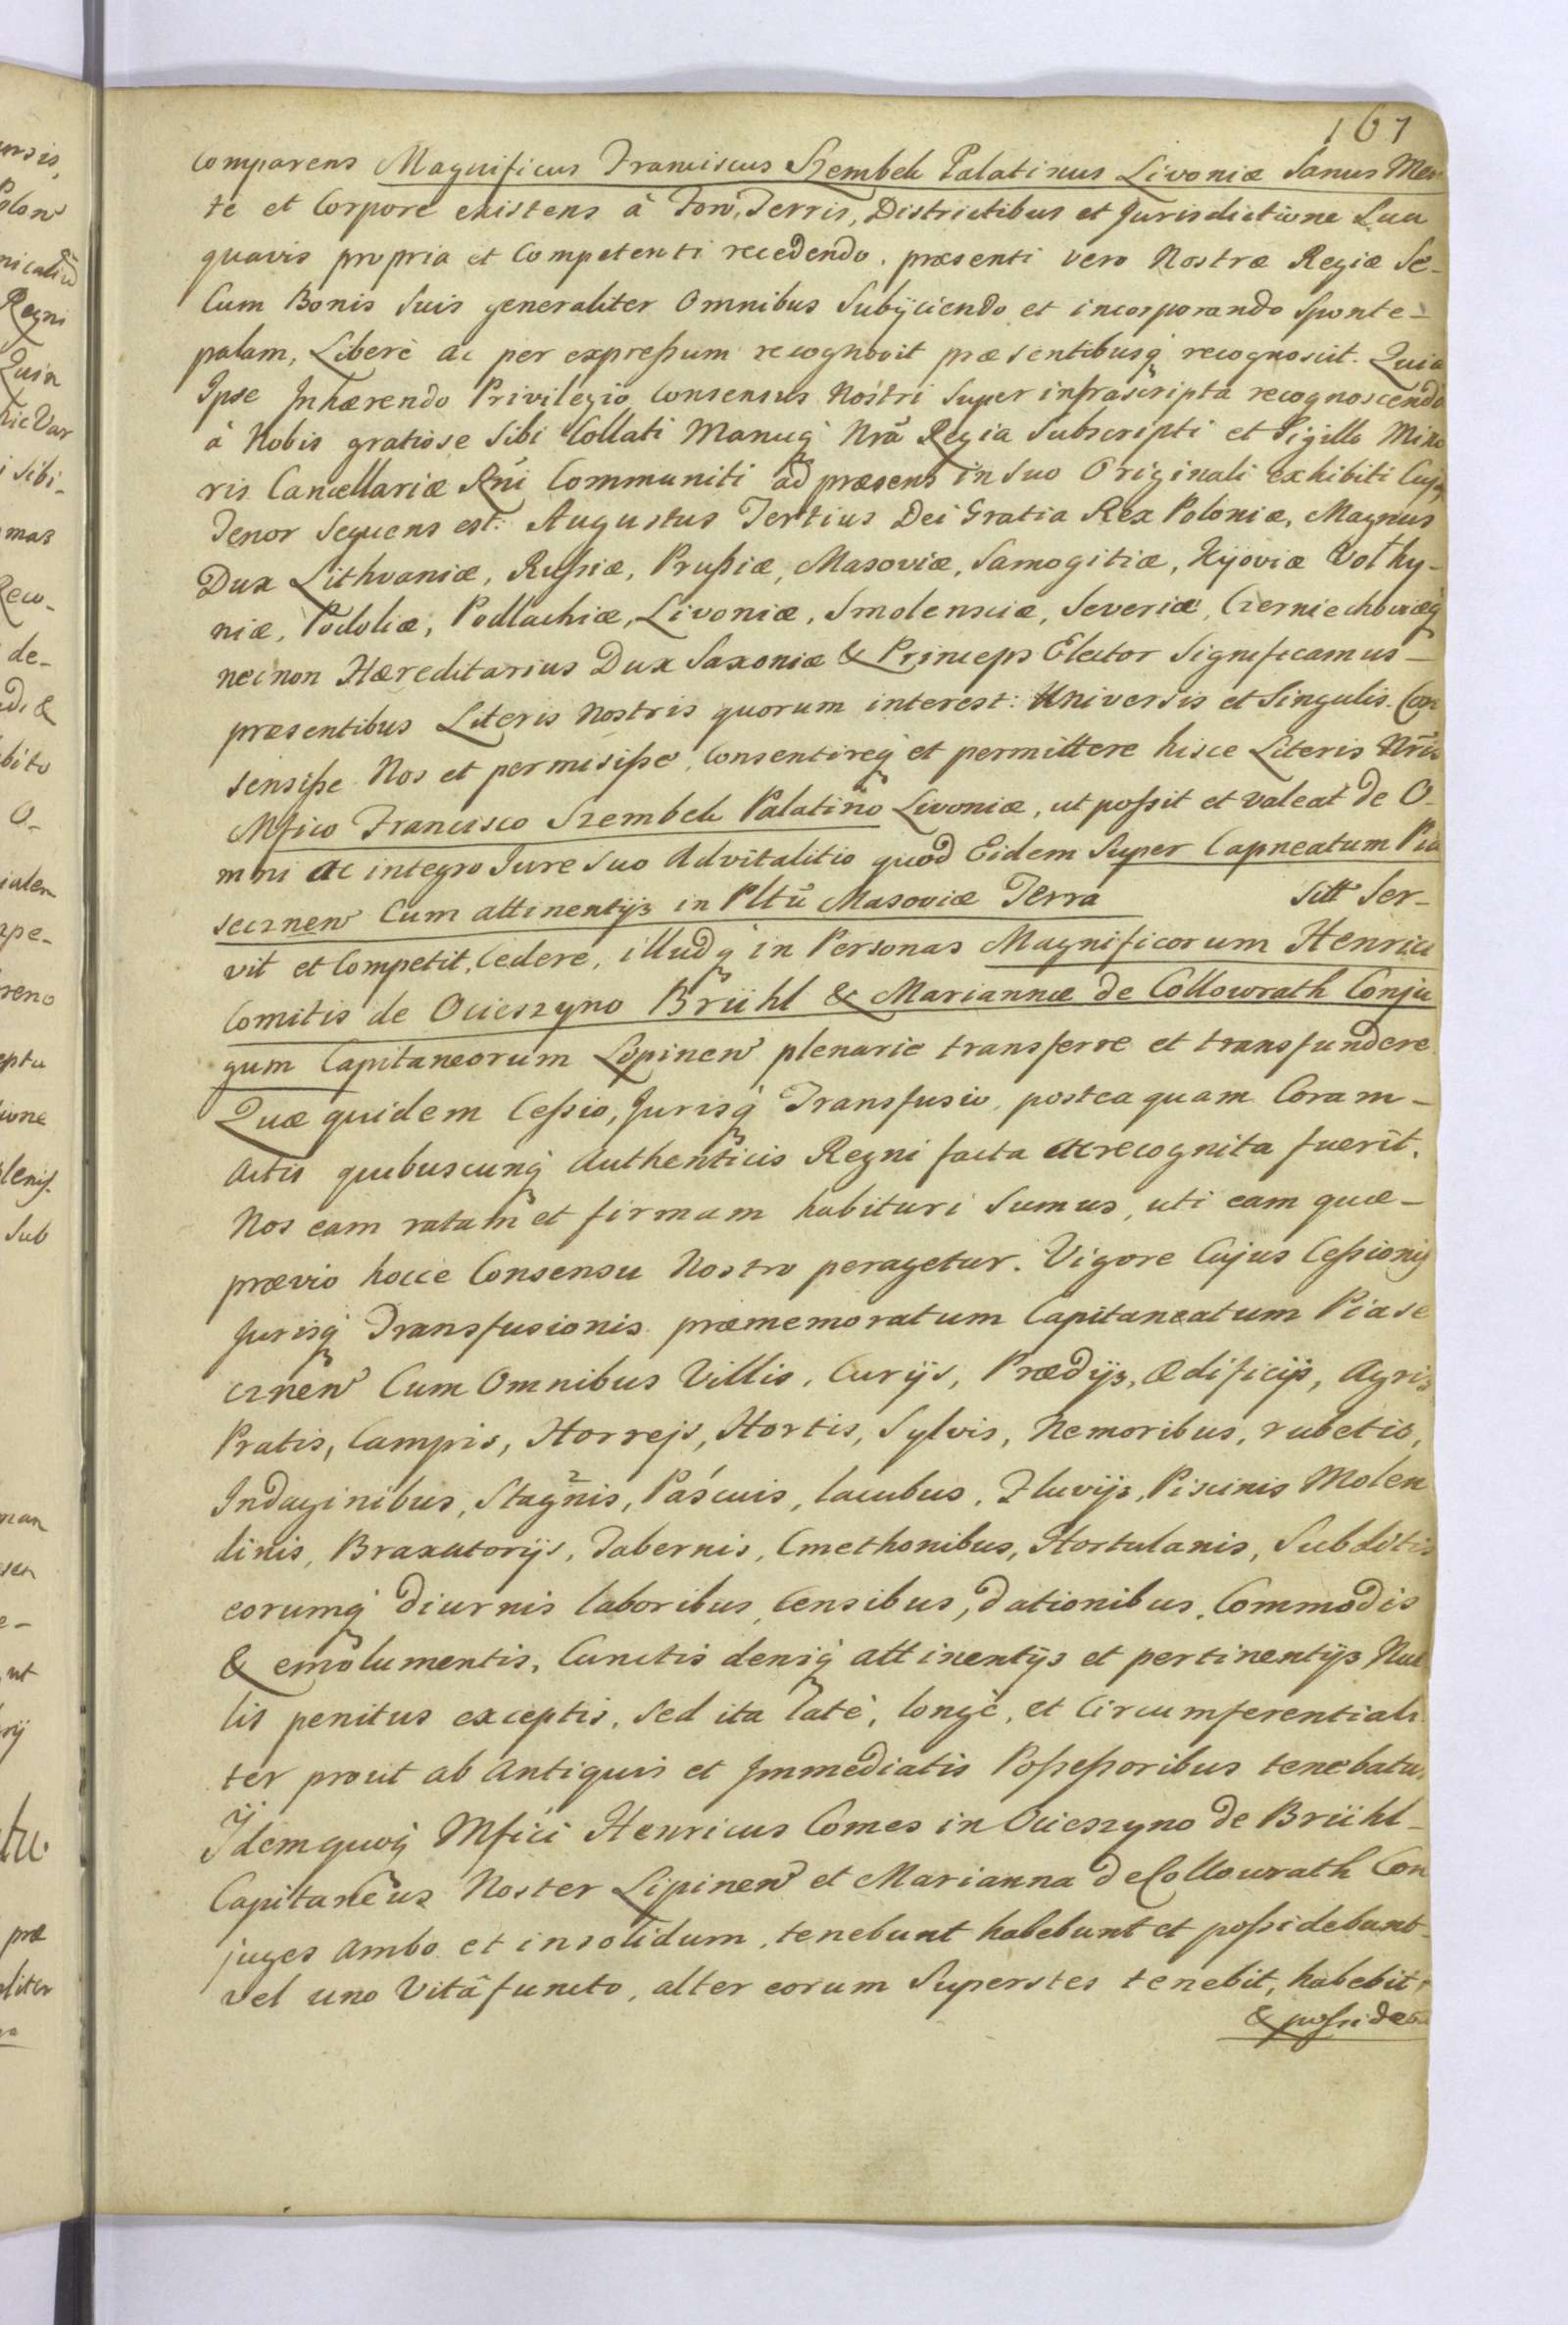 167
Comparens Magnificus Franciscus Szembek Palatinus Livoniæ Sanus Men
te et Corpore existens â Foro, Terris, Districtibus et Jurisdictione Sua
quavis propria et Competenti recedendo, præsenti vero Nostræ Regiæ Se-
Cum Bonis Suis generaliter Omnibus Subÿciendo et incorporando Sponte-
palam, Liberè ac per expreſsum recognovit præsentibusq́ recognoscit. Quia
Ipse Inhærendo Privilegio Consensus Nostri Super infrascripta recognoscendo
â Nobis gratiose Sibi Collati Manuq́ Nrã Regia Subscripti et Sigillo Mino
ris Cancellariæ Rñi Communiti ad præsens in Suo Originali exhibiti Cujq
Tenor Sequens est: Augustus Tertius Dei Gratia Rex Poloniæ, Magnus
Dux Lithvaniæ, Ruſsiæ, Pruſsiæ, Masoviæ, Samogitiæ, Kÿoviæ Volhy-
niæ, Podoliæ, Podlachiæ, Livoniæ, Smolensciæ, Severiæ, Czerniechoviæq́
necnon Hæreditarius Dux Saxoniæ & Princeps Elector Significamus-
præsentibus Literis Nostris quorum interest: Universis et Singulis. Con
sensiſse Nos et permisiſse, Consentireq́ et permittere hisce Literis Nris
Mfico Francisco Szembek Palatiño Livoniæ, ut poſsit et valeat de O-
mni ac integro Jure Suo Advitalitio quod Eidem Super Capneatum Pia
secznen Cum attinentijs in Pltũ Masoviæ Terra Sitt Ser-
vit et Competit, Cedere, illudq́ in Personas Magnificorum Henrici
Comitis de Ocieszyno Brühl & Mariannæ de Collowrath Conju
gum Capitaneorum Lipinen plenarie transferre et transfundere
Quæ quidem Ceſsio, Jurisq́ Transfusio, posteaquam Coram-
Actis quibuscunq́ Authenticis Regni facta ac recognita fuerit.
Nos eam ratam et firmam habituri Sumus, uti eam quæ-
prævio hocce Consensu Nostro peragetur. Vigore Cujus Ceſsionis
Jurisq́ Transfusionis præmemoratum Capitaneatum Piase
cznen Cum Omnibus Villis, Curÿs, Prædÿs, Ædificÿs, Agris
Pratis, Campis, Horrejs, Hortis, Sylvis, Nemoribus, rubetis,
Indaginibus, Stagnis, Pascuis, lacubus, Fluvÿs, Piscinis Molen
dinis, Braxatorÿs, Tabernis, Cmethonibus, Hortulanis, Subditis
eorumq́ diurnis laboribus, Censibus, dationibus, Commodis
& emolumentis, Cunctis deniq́ attinentÿs et pertinentÿs Nul
lis penitus exceptis, Sed ita latè, longè, et Circumferentiali
ter prout ab Antiquis et Immediatis Poſseſsoribus tenebatur
Ijdemquoq́ Mfici Henricus Comes in Ocieszyno de Brühl-
Capitaneus Noster Lipinen et Marianna de Collowrath Con
juges Ambo et insolidum, tenebunt habebunt et poſsidebunt-
vel uno Vitâ functo, alter eorum Superstes tenebit, habebit,
& poſsidebit